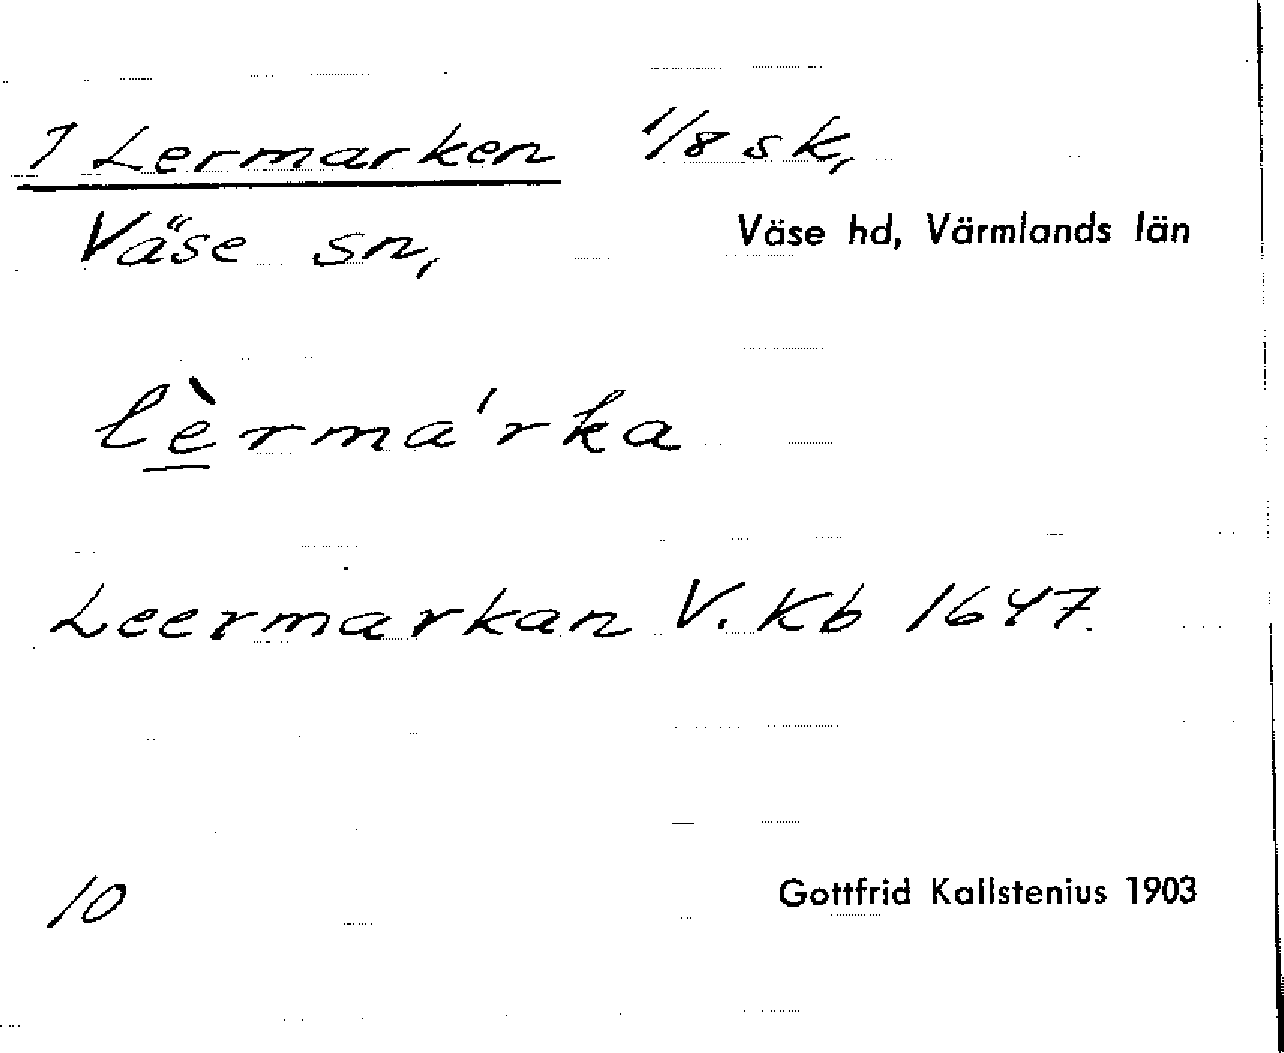 1 Lermarken 1/8 sk,
Väse sn, Väse hd, Värmlands län
lèrma'rka
Leermarkan V. Kb 1647.
10 Gottfrid Kallstenius 1903